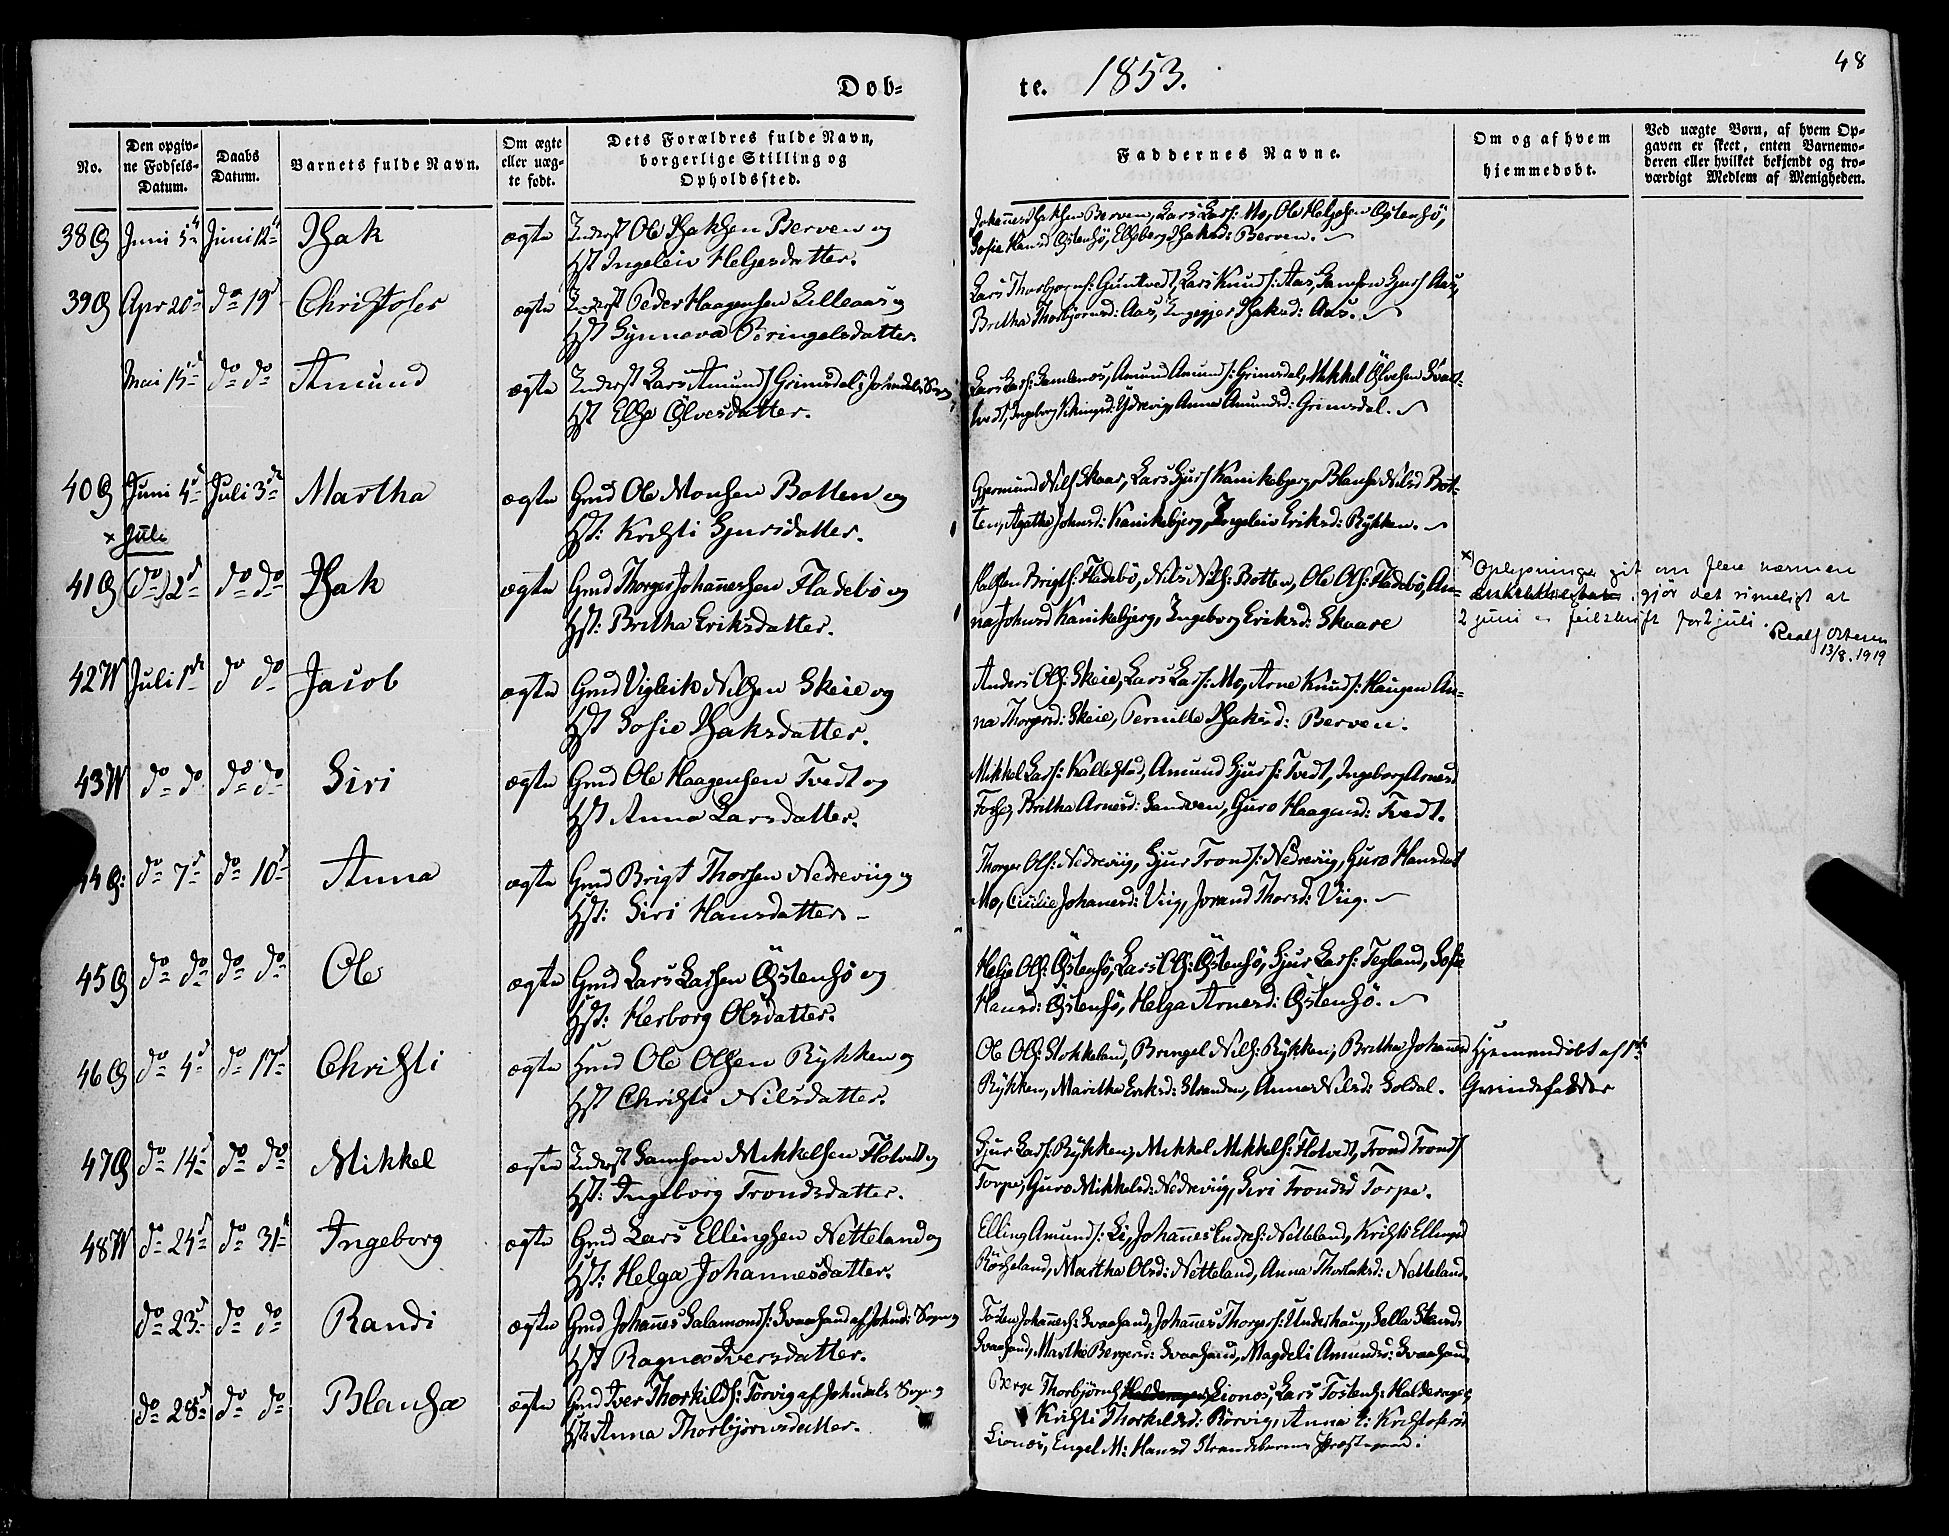 48
Døb-
te. 1853.
No.
Den opgiv-
ne Fødsels-
Datum.
Daabs
Datum.
Barnets fulde Navn.
Om ægte
eller uæg-
te født.
Dets Forældres fulde Navn,
borgerlige Stilling og
Opholdssted.
Faddernes Navne.
Om og af hvem
hjemmedøbt.
Ved uægte Børn, af hvem Op-
gaven er skeet, enten Barnemo-
deren eller hvilket bekjendt og tro-
værdigt Medlem af Menigheden.
38 G Juni 5 Juni 12 Isak ægte Inderst Ole Isaksen Berven og
Hst Ingeleiv Helgesdatter.
Johannes Isaksen Berven, Lars Lars: Mo, Ole Helgesen Østensø,
Sofie Hansd Østensø, Elsebeg Isaksd: Berven.
39 G Apr 20 do 19 Christofer ægte Inderst Peder Haagensen Lilleaas og
Hst Synneva Bringelsdatter.
Lars Thorbjørns: Guntvedt, Lars Knuds: Aas, Samson Gjurs Aas,
Britha Thorbjørnsd: Aas, Ingegjer Isaksd: Aas.
Mai 15 do do Amund ægte Inderst Lars Amunds Grimsdal i Johndals Sogn
Hst Else Ølvesdatter.
Lars Lars: Samlenæs, Amund Amunds: Grimsdal, Mikkel Ølvesen Svart-
vedt, Ingeborg Vikingsd: Ydrevig, Anna Amundsd: Grimsdal.
40 G Juni 4 Juli 3 Martha ægte Gmd Ole Monsen Botten og
Hst: Kristi Gjursdatter.
Gjermund Nils Skaar, Lars Gjurs Kanikebjerg, Blansa Nilsd Bot-
ten, Agatha Johnsd: Kanikebjerg, Ingeleiv Eriksd: Rykken.
x Juli
41 G (do) 2 do do Isak ægte Gmd Thorger Johannessen Fladebø og
Hst: Britha Eriksdatter.
Halsten Brigts: Fladebø, Nils Nils: Botten, Ole Ols: Fladebø, An-
na Johnsd Kanikebjerg, Ingeborg Eriksd: Skaare
x) Oplysninger git om flere nærmere
gjør det rimeligt at
2 juni er feilskrift for 2 juli.
13/8. 1919
42 W Juli 1 do do Jacob ægte Gmd Vigleik Nilsen Skeie og
Hst Sofie Isaksdatter.
Anders Ols: Skeie, Lars Lars: Mo, Arne Knuds: Haugen An-
na Thorgersd: Skeie, Pernille Isaksd: Berven.
43 W do do do do Siri ægte Gmd Ole Haagensen Tvedt og
Hst Anna Larsdatter.
Mikkel Lars: Kallestad, Amund Gjurs: Tvedt, Ingeborg Arnesd
Fosse, Britha Arnesd: Sandven, Guro Haagensd: Tvedt.
44 G: do 7 do 10 Anna ægte Gmd Brigt Thorsen Nedreviig og
Hst: Siri Hansdatter
Thorger Ols: Nedreviig, Gjur Tronds: Nedreviig, Guro Hansdat
Mo, Cicilie Johanesd: Viig, Jorand Thorsd: Viig.
45 G do do do do Ole ægte Gmd Lars Larsen Østensø og
Hst: Herborg Olsdatter.
Helje Ols: Østensø, Lars Ols: Østensø, Gjur Lars: Tegland, Sofie
Hansd: Østensø, Helga Arnesd: Østensø.
46 G do 4 do 17 Christi ægte Hmd Ole Olsen Rykken og
Hst Christi Nilsdatter.
Ole Ols: Stokkeland, Bringel Nils: Rykken, Britha Johannesd
Rykken, Maritha Eriksd: Stranden, Anna Nilsd: Soldal.
Hjemmedøbt af 1ste
Qvindefadder
47 G do 14 do do Mikkel ægte Inderst Samson Mikkelsen Flotvedt og
Hst: Ingeborg Trondsdatter.
Gjur Lars: Rykken, Mikkel Mikkels: Flotvedt, Trond Tronds
Torpe, Guro Mikkelsd: Nedreviig, Siri Trondsd Torpe.
48 W do 24 do 31 Ingeborg ægte Gmd Lars Ellingsen Netteland og
Hst: Helga Johannesdatter.
Elling Amunds: Li, Johannes Endres: Netteland, Kristi Ellingsd
Røsseland, Martha Olsd: Netteland, Anna Thorlaksd: Netteland.
do 23 do do Randi ægte Gmd Johannes Salamonds: Svaasand af Johnd: Sogn og
Hst Ragna Iversdatter.
Tosten Johannes: Svaasand, Johannes Thorgers: Underhaug, Sella Stensd.
Svaasand, Martha Bergesd: Svaasand, Magdeli Amundsd: Svaasand
do 28 do do Blansa ægte Gmd Iver Thorkilds: Torvig af Johndals Sogn og
Hst Anna Thorbjørnsdatter.
Berge Thorbjørns Lionæs, Lars Tostens: Halderager,
Kristi Thorkildsd: Rørvig, Anna E: Kristofersd
Lionæs, Engel M: Hansd Strandebarms Præstegaard.